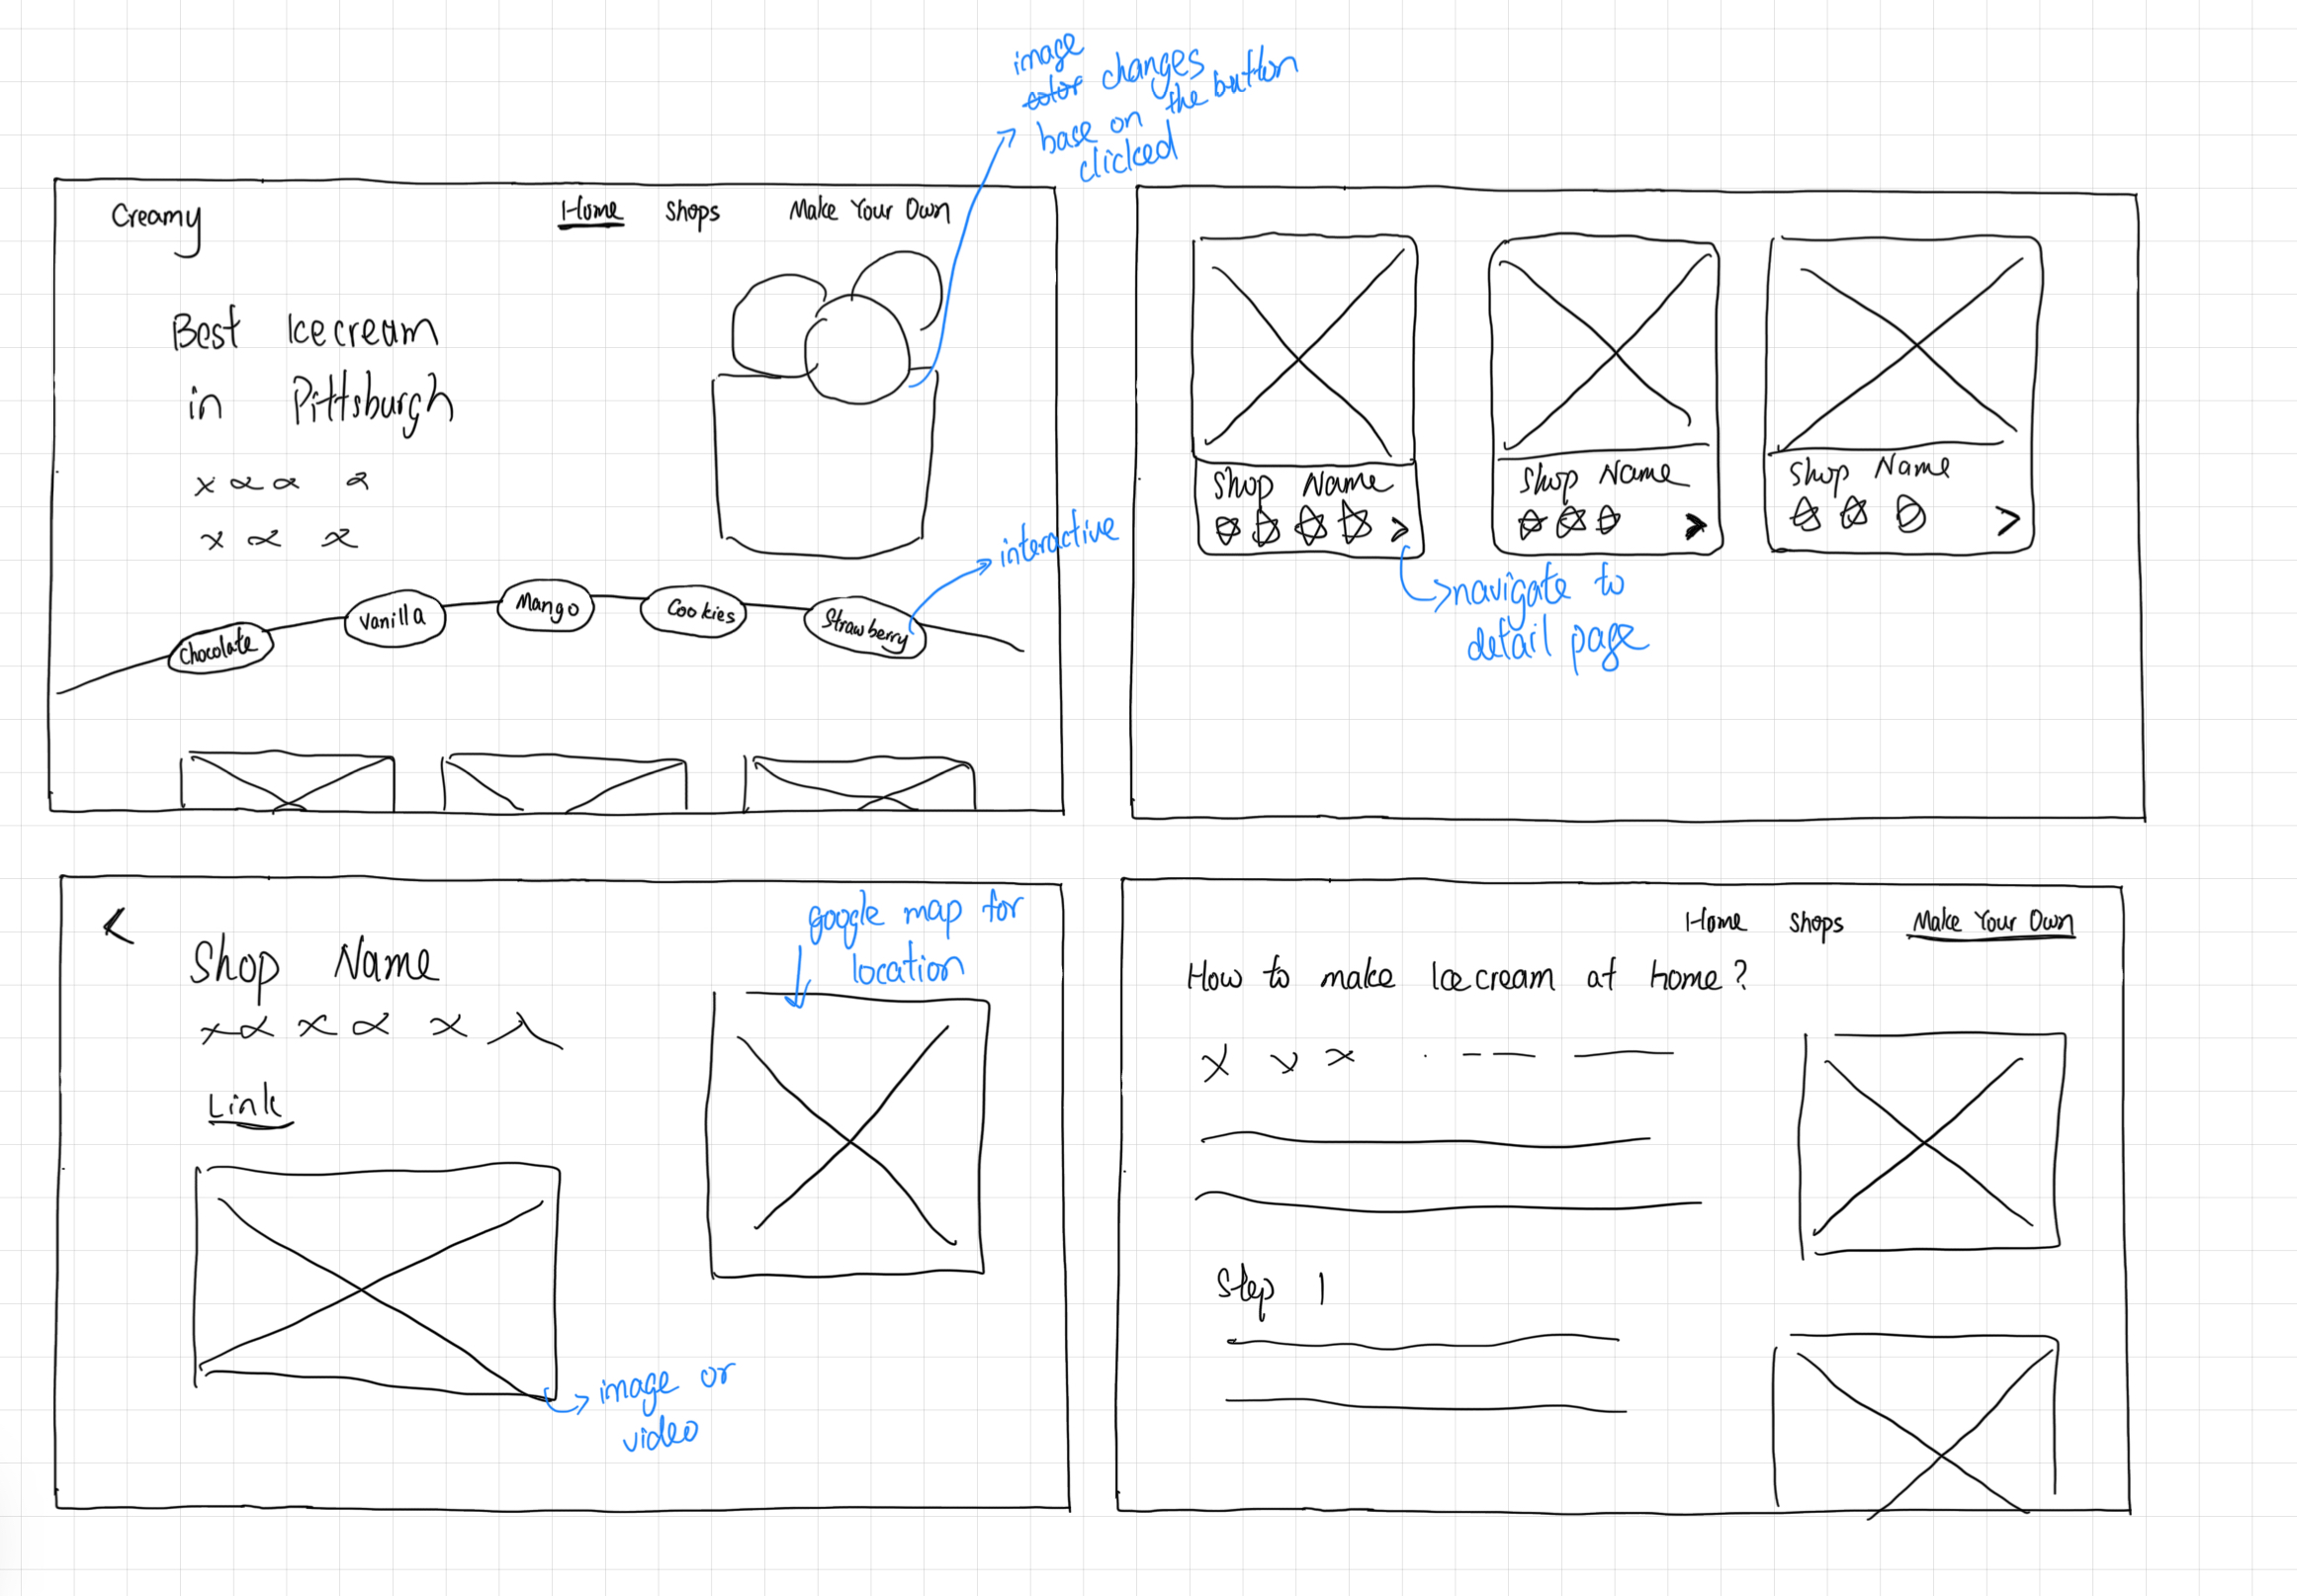 image
color changes
base on the button
clicked
Creamy
Home Shops Make Your Own
Best Icecream
in Pittsburgh
interactive
Chocolate Vanilla Mango Cookies Strawberry
Shop Name
Shop Name
Shop Name
navigate to
detail page
google map for
location
Shop Name
Link
image or
video
Home Shops Make Your Own
How to make Icecream at home?
Step 1